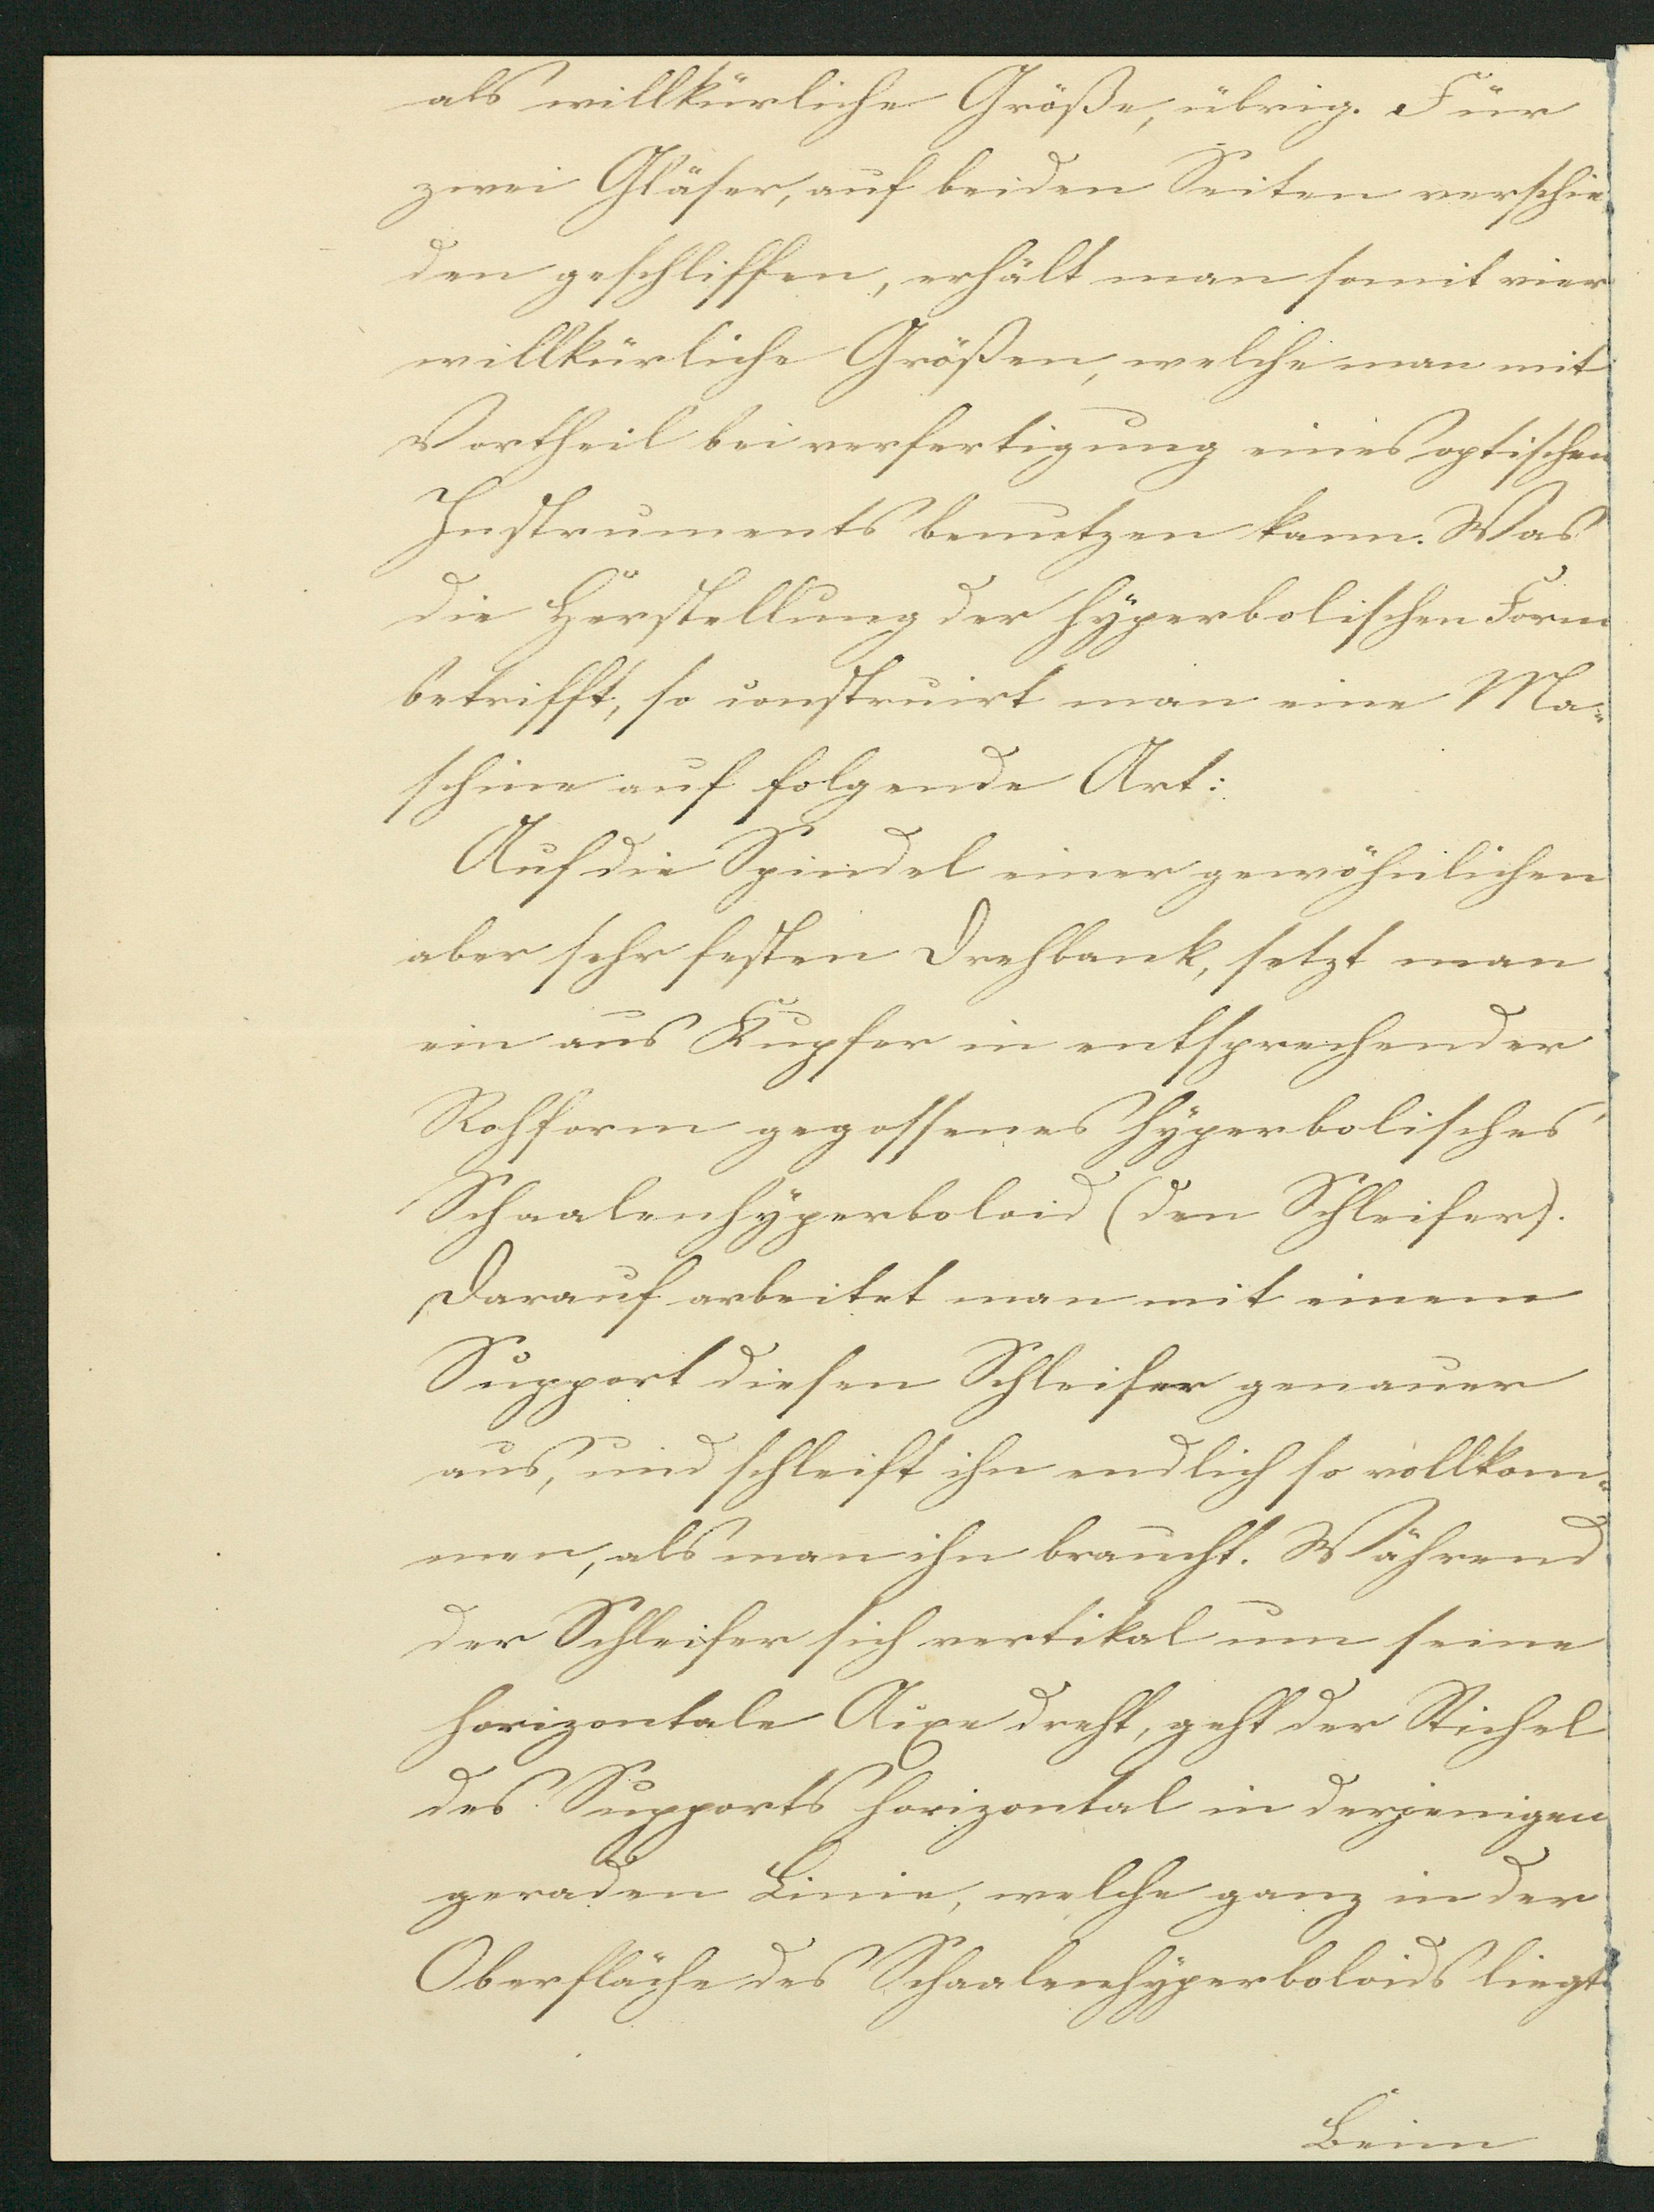 als willkürliche Größe, übrig. Für
zwei Gläser, auf beiden Seiten verschie
den geschliffen, erhält man somit vier
willkürliche Größen, welche man mit
Vortheil bei verfertigung eines optischen
Instruments benutzen kann. Was
die Herstellung der hyperbolischen Form
betrifft, so construirt man eine Ma=
schine auf folgende Art:
Auf die Spindel einer gewöhnlichen
aber sehr festen Drehbank, setzt man
ein aus Kupfer in entsprechender
Rohform gegossenes hyperbolisches
Schaalenhyperboloid (den Schleifer).
Darauf arbeitet man mit einem
Support diesen Schleifer genauer
aus, und schleift ihn endlich so vollkom=
men, als man ihn braucht. Während
der Schleifer sich vertikal um seine
horizontale Aixe dreht, geht der Stichel
des Supports horizontal in derjenigen
geraden Linie, welche ganz in der
Oberfläche des Schaalenhyperboloids liegt.
Beim